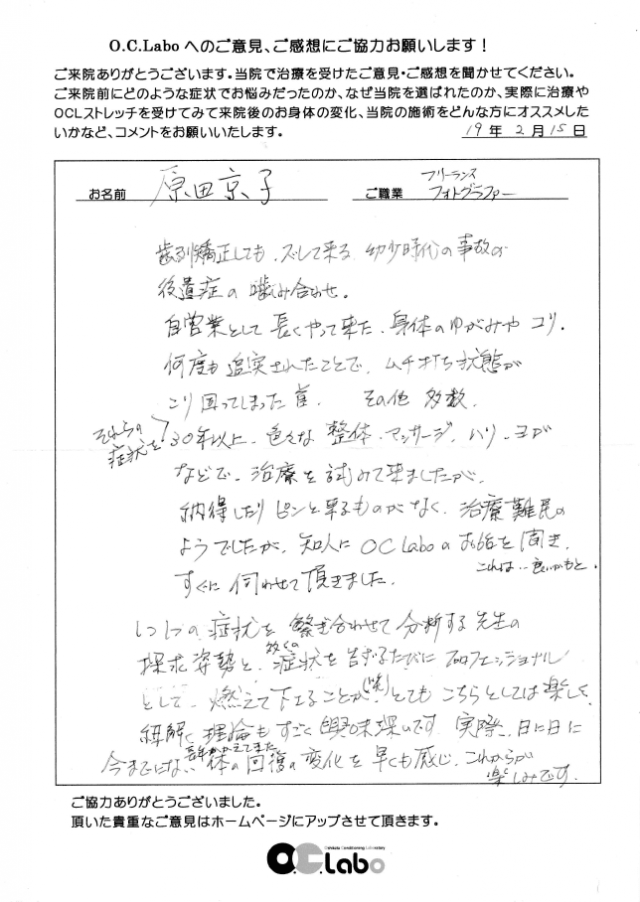 O.C.Labo へのご意見、ご感想にご協力お願いします！
ご来院ありがとうございます。当院で治療を受けたご意見・ご感想を聞かせてください。
ご来院前にどのような症状でお悩みだったのか、なぜ当院を選ばれたのか、実際に治療や
OCLストレッチを受けてみて来院後のお身体の変化、当院の施術をどんな方にオススメした
いかなど、コメントをお願いいたします。
19年 2月15日
お名前 原田京子
ご職業 フリーランス
フォトグラファー
歯列矯正しても、ズレて来る 幼少時代の事故の
後遺症の 噛み合わせ。
自営業として 長くやって来た、身体のゆがみや コリ、
何度も 追突されたことで、ムチ打ち状態が
こり固ってしまった首、 その他 多数、
それらの
症状を
30年以上、色々な 整体、マッサージ、ハリ、ヨガ
などで、治療を試みて来ましたが、
納得したり ピンと来るものがなく、治療難民の
ようでしたが、知人に OC Laboのお話を聞き、
これは‥良いかもと。
すぐに 伺わせて頂きました。
1つ1つの 症状を 繋ぎ合わせて 分析する先生の
探求姿勢と、数々の 症状を 告げるたびに プロフェッショナル
として、燃えて下さることが(笑) とても こちらとしては楽しく
理論もすごく興味深いです。実際、日に日に
今までにない
体の回復の変化を 早くも感じ、これからが
楽しみです。
ご協力ありがとうございました。
頂いた貴重なご意見はホームページにアップさせて頂きます。
O.C.Labo